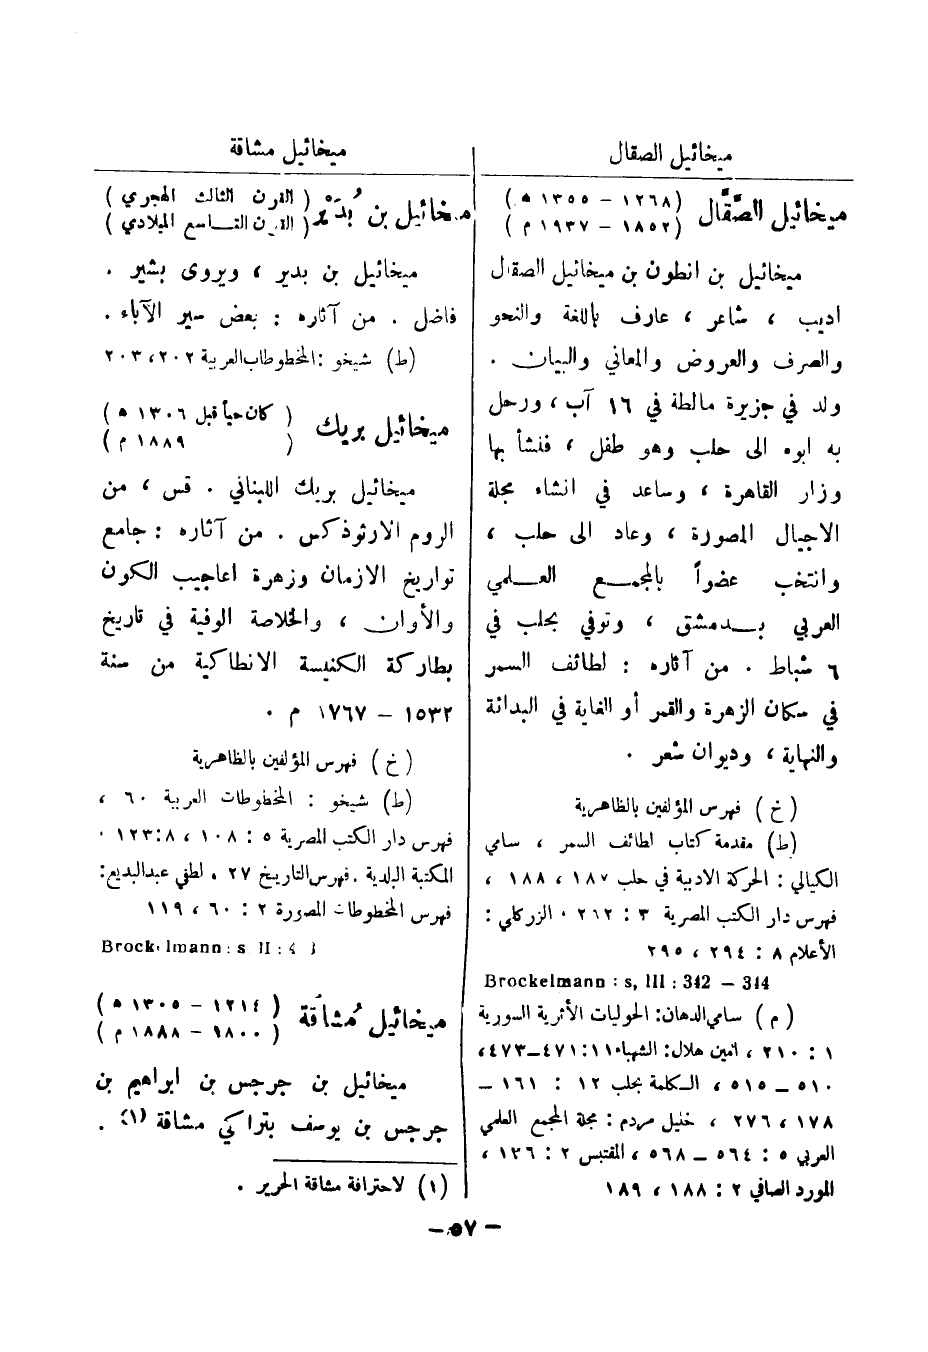 ميخائيل الصقال
ميخائيل الصَّقَّال (١٢٦٨ – ١٣٥٥ ه)
(١٨٥٢ – ١٩٣٧ م)
ميخائيل بن انطون بن ميخائيل الصقال
اديب ، شاعر ، عارف باللغة والنحو
والصرف والعروض والمعاني والبيان .
ولد في جزيرة مالطة في ١٦ آب ، ورحل
به ابوه الى حلب وهو طفل ، فنشأ بها
وزار القاهرة ، وساعد في انشاء مجلة
الاجيال المصورة ، وعاد الى حلب ،
وانتخب عضواً بالمجمع العلمي
العربي بدمشق ، وتوفي بحلب في
٦ شباط . من آثاره : لطائف السمر
في سكان الزهرة والقمر أو الغاية في البدائة
والنهاية ، وديوان شعر .
(خ) فهرس المؤلفين بالظاهرية
(ط) مقدمة كتاب لطائف السمر ، سامي
الكيالي : الحركة الادبية في حلب ١٨٧ ، ١٨٨ ،
فهرس دار الكتب المصرية ٣ : ٢١٢ . الزركلي :
الأعلام ٨ : ٢٩٤ ، ٢٩٥
Brockelmann : s, III : 342 – 344
(م) سامي الدهان : الحوليات الأثرية السورية
١ : ٢١٠ ، امين هلال : الشهباء ١١ : ٤٧١ – ٤٧٣ ،
٥١٠ – ٥١٥ ، الكلمة بحلب ١٢ : ١٦١ –
١٧٨ ، ٢٧٦ ، خليل مردم : مجلة المجمع العلمي
العربي ٥ : ٥٦٤ – ٥٦٨ ، المقتبس ٢ : ١٣٦ ،
المورد الصافي ٢ : ١٨٨ ، ١٨٩
ميخائيل مشاقة
ميخائيل بن بدير (القرن الثالث الهجري)
(القرن التاسع الميلادي)
ميخائيل بن بدير ، ويروى بشير .
فاضل . من آثاره : بعض سير الآباء .
(ط) شيخو : المخطوطات العربية ٢٠٢ ، ٢٠٣
ميخائيل بريك (كان حياً قبل ١٣٠٦ ه)
( ١٨٨٩ م)
ميخائيل بريك اللبناني . قس ، من
الروم الارثوذكس . من آثاره : جامع
تواريخ الازمان وزهرة اعاجيب الكون
والأوان ، والخلاصة الوفية في تاريخ
بطاركة الكنيسة الانطاكية من سنة
١٥٣٢ – ١٧٦٧ م .
(خ) فهرس المؤلفين بالظاهرية
(ط) شيخو : المخطوطات العربية ٦٠ ،
فهرس دار الكتب المصرية ٥ : ١٠٨ ، ٨ : ١٢٣ .
المكتبة البلدية . فهرس التاريخ ٢٧ . لطفي عبدالبديع :
فهرس المخطوطات المصورة ٢ : ٦٠ ، ١١٩
Brockelmann : s II :
ميخائيل مُشَاقة (١٢١٤ – ١٣٠٥ ه)
(١٨٠٠ – ١٨٨٨ م)
ميخائيل بن جرجس بن ابراهيم بن
جرجس بن يوسف بتراكي مشاقة (١) .
(١) لاحترافة مشاقة الحرير .
– ٥٧ –